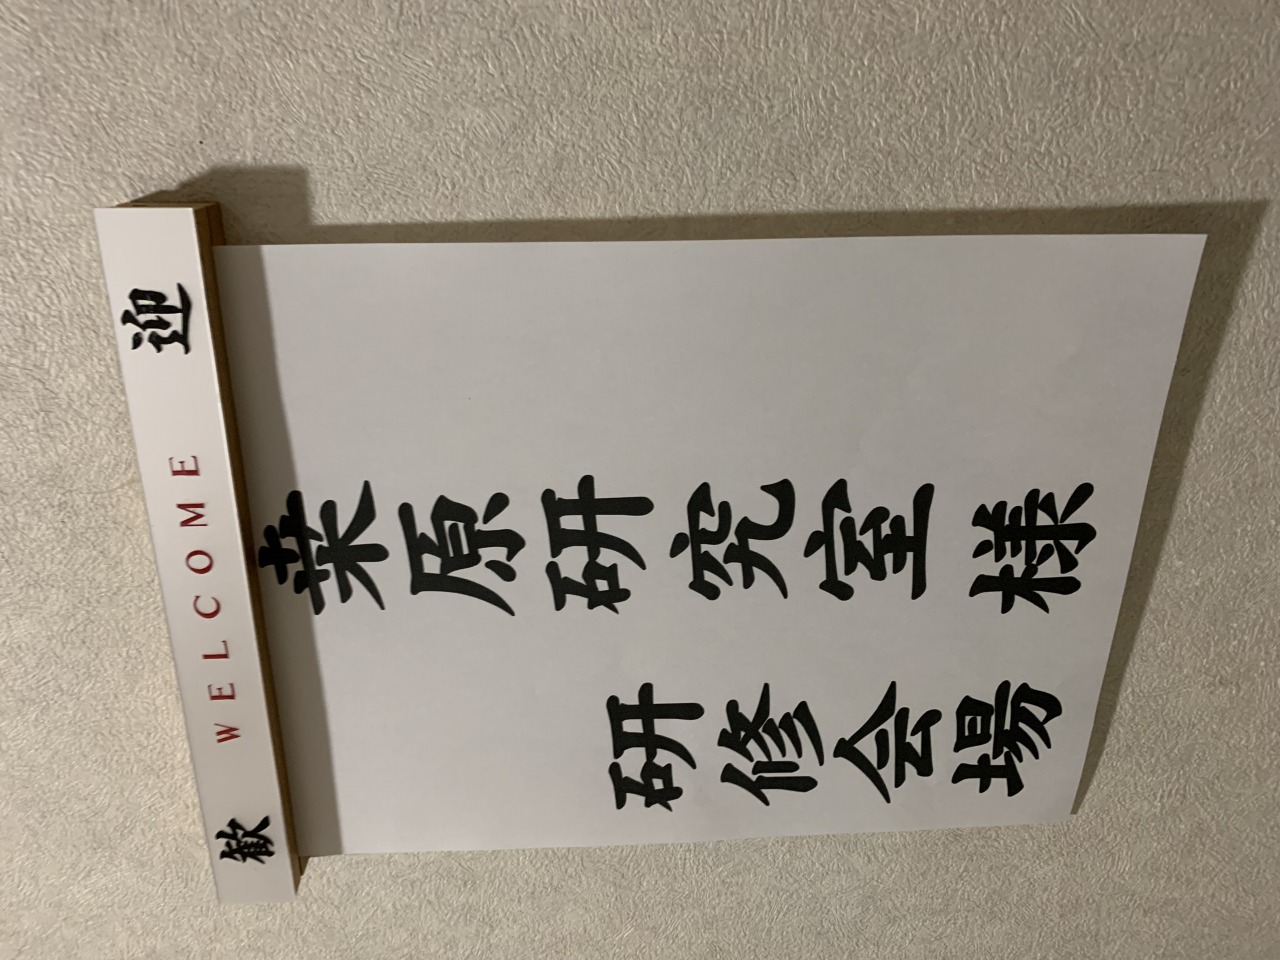 歓 WELCOME 迎
桒原研究室 様
研修会場